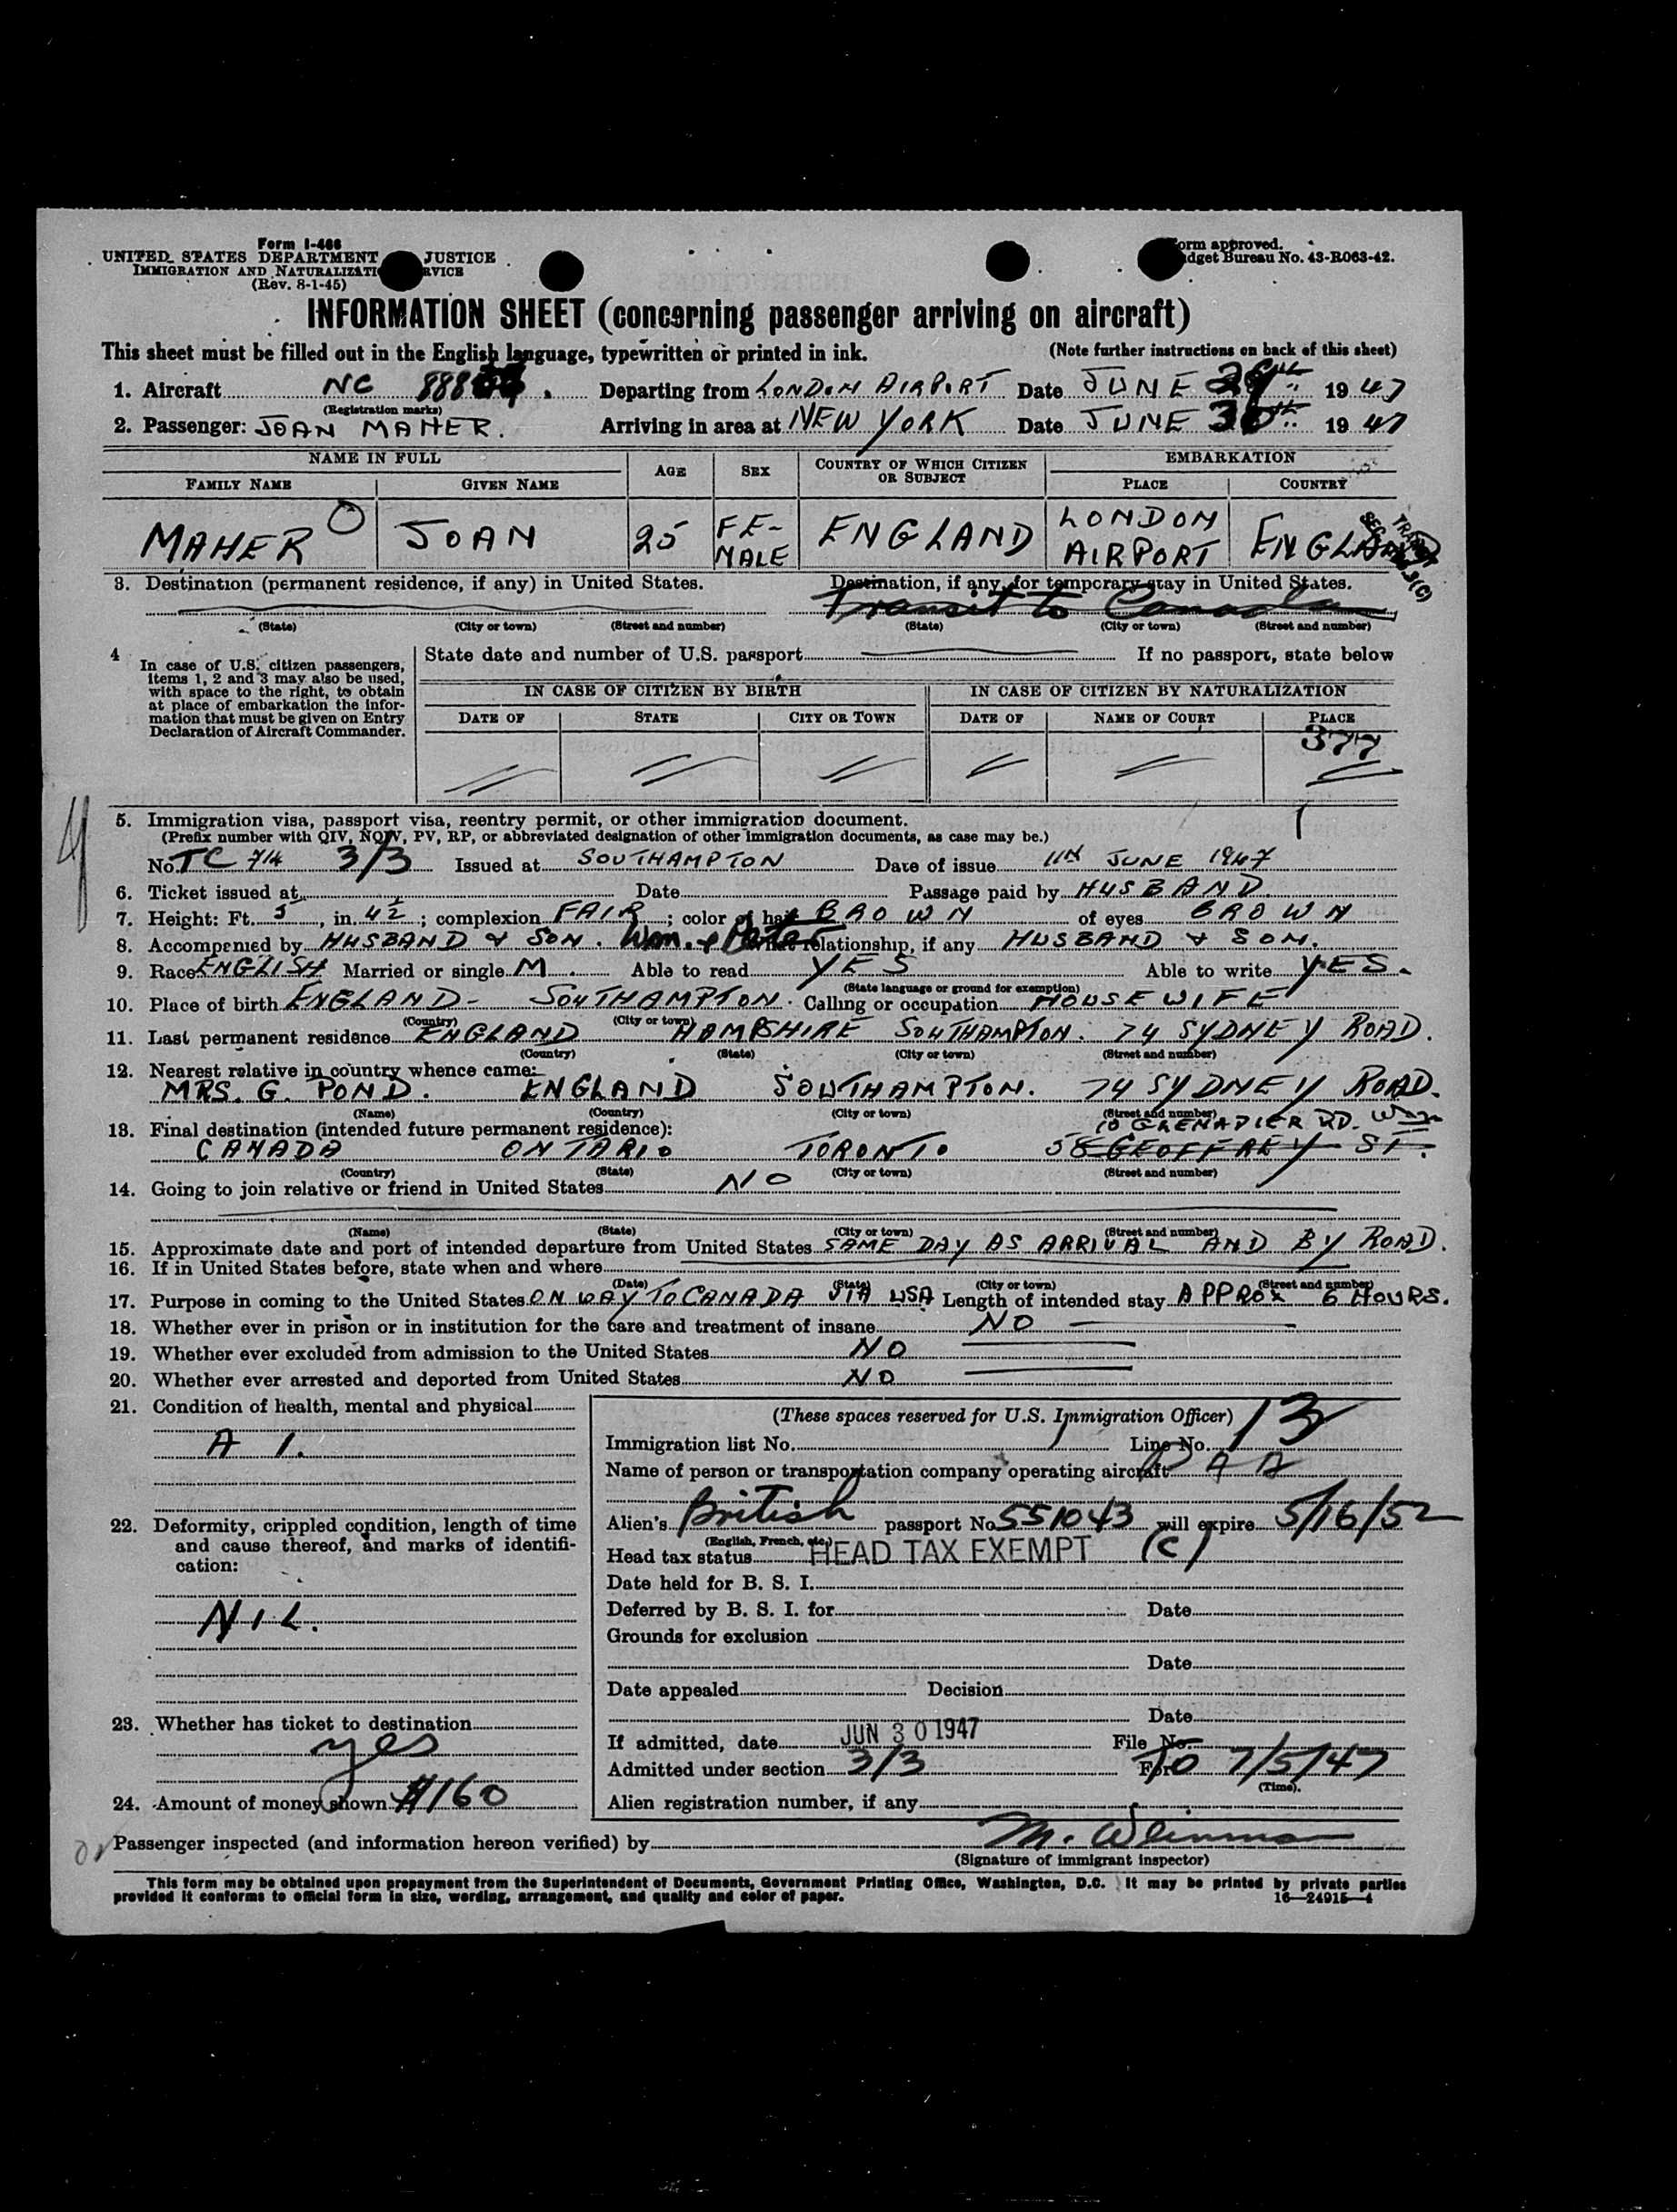 Form I-466
UNITED STATES DEPARTMENT JUSTICE
IMMIGRATION AND NATURALIZATI RVICE
(Rev. 8-1-45)
orm approved.
dget Bureau No. 43-R063-42.
INFORMATION SHEET (concerning passenger arriving on aircraft)
This sheet must be filled out in the English language, typewritten or printed in ink. (Note further instructions on back of this sheet)
1. Aircraft NC Departing from LONDON AIRPORT Date JUNE 29th 1947
(Registration marks)
2. Passenger: JOAN MAHER. Arriving in area at NEW YORK Date JUNE 30th 1947
NAME IN FULL AGE SEX COUNTRY OF WHICH CITIZEN OR SUBJECT EMBARKATION
FAMILY NAME GIVEN NAME PLACE COUNTRY
MAHER JOAN 25 FE-MALE ENGLAND LONDON AIRPORT ENGLAND
3. Destination (permanent residence, if any) in United States. Destination, if any, for temporary stay in United States.
Transit to Canada
(State) (City or town) (Street and number) (State) (City or town) (Street and number)
4 In case of U.S. citizen passengers, items 1, 2 and 3 may also be used, with space to the right, to obtain at place of embarkation the information that must be given on Entry Declaration of Aircraft Commander.
State date and number of U.S. passport If no passport, state below
IN CASE OF CITIZEN BY BIRTH IN CASE OF CITIZEN BY NATURALIZATION
DATE OF STATE CITY OR TOWN DATE OF NAME OF COURT PLACE
377
5. Immigration visa, passport visa, reentry permit, or other immigration document.
(Prefix number with QIV, NQIV, PV, RP, or abbreviated designation of other immigration documents, as case may be.)
No. TC 714 3/3 Issued at SOUTHAMPTON Date of issue 11th JUNE 1947
6. Ticket issued at Date Passage paid by HUSBAND
7. Height: Ft. 5, in. 4½; complexion FAIR; color of hair BROWN of eyes BROWN
8. Accompanied by HUSBAND & SON. relationship, if any HUSBAND & SON.
9. Race ENGLISH Married or single M. Able to read YES Able to write YES.
(State language or ground for exemption)
10. Place of birth ENGLAND - SOUTHAMPTON. Calling or occupation HOUSEWIFE
(Country) (City or town)
11. Last permanent residence ENGLAND HAMPSHIRE SOUTHAMPTON. 74 SYDNEY ROAD.
(Country) (State) (City or town) (Street and number)
12. Nearest relative in country whence came:
MRS. G. POND. ENGLAND SOUTHAMPTON. 74 SYDNEY ROAD.
(Name) (Country) (City or town) (Street and number)
10 GRENADIER RD.
13. Final destination (intended future permanent residence):
CANADA ONTARIO TORONTO 58 GEOFFREY ST.
(Country) (State) (City or town) (Street and number)
14. Going to join relative or friend in United States NO
(Name) (State) (City or town) (Street and number)
15. Approximate date and port of intended departure from United States SAME DAY AS ARRIVAL AND BY ROAD.
16. If in United States before, state when and where
(Date) (State) (City or town) (Street and number)
17. Purpose in coming to the United States ON WAY TO CANADA VIA USA Length of intended stay APPROX 6 HOURS.
18. Whether ever in prison or in institution for the care and treatment of insane NO
19. Whether ever excluded from admission to the United States NO
20. Whether ever arrested and deported from United States NO
21. Condition of health, mental and physical
A 1.
22. Deformity, crippled condition, length of time and cause thereof, and marks of identification:
NIL.
23. Whether has ticket to destination
yes
24. Amount of money shown $160
(These spaces reserved for U.S. Immigration Officer)
Immigration list No. Line No. 13
Name of person or transportation company operating aircraft PAA
Alien's British passport No. 551043 will expire 5/16/52
(English, French, etc.)
Head tax status HEAD TAX EXEMPT (C)
Date held for B. S. I.
Deferred by B. S. I. for Date
Grounds for exclusion
Date
Date appealed Decision
Date
If admitted, date JUN 30 1947 File No.
Admitted under section 3/3 For TO 7/5/47
(Time).
Alien registration number, if any
Passenger inspected (and information hereon verified) by
(Signature of immigrant inspector)
This form may be obtained upon prepayment from the Superintendent of Documents, Government Printing Office, Washington, D.C. It may be printed by private parties
provided it conforms to official form in size, wording, arrangement, and quality and color of paper. 16—24915-4